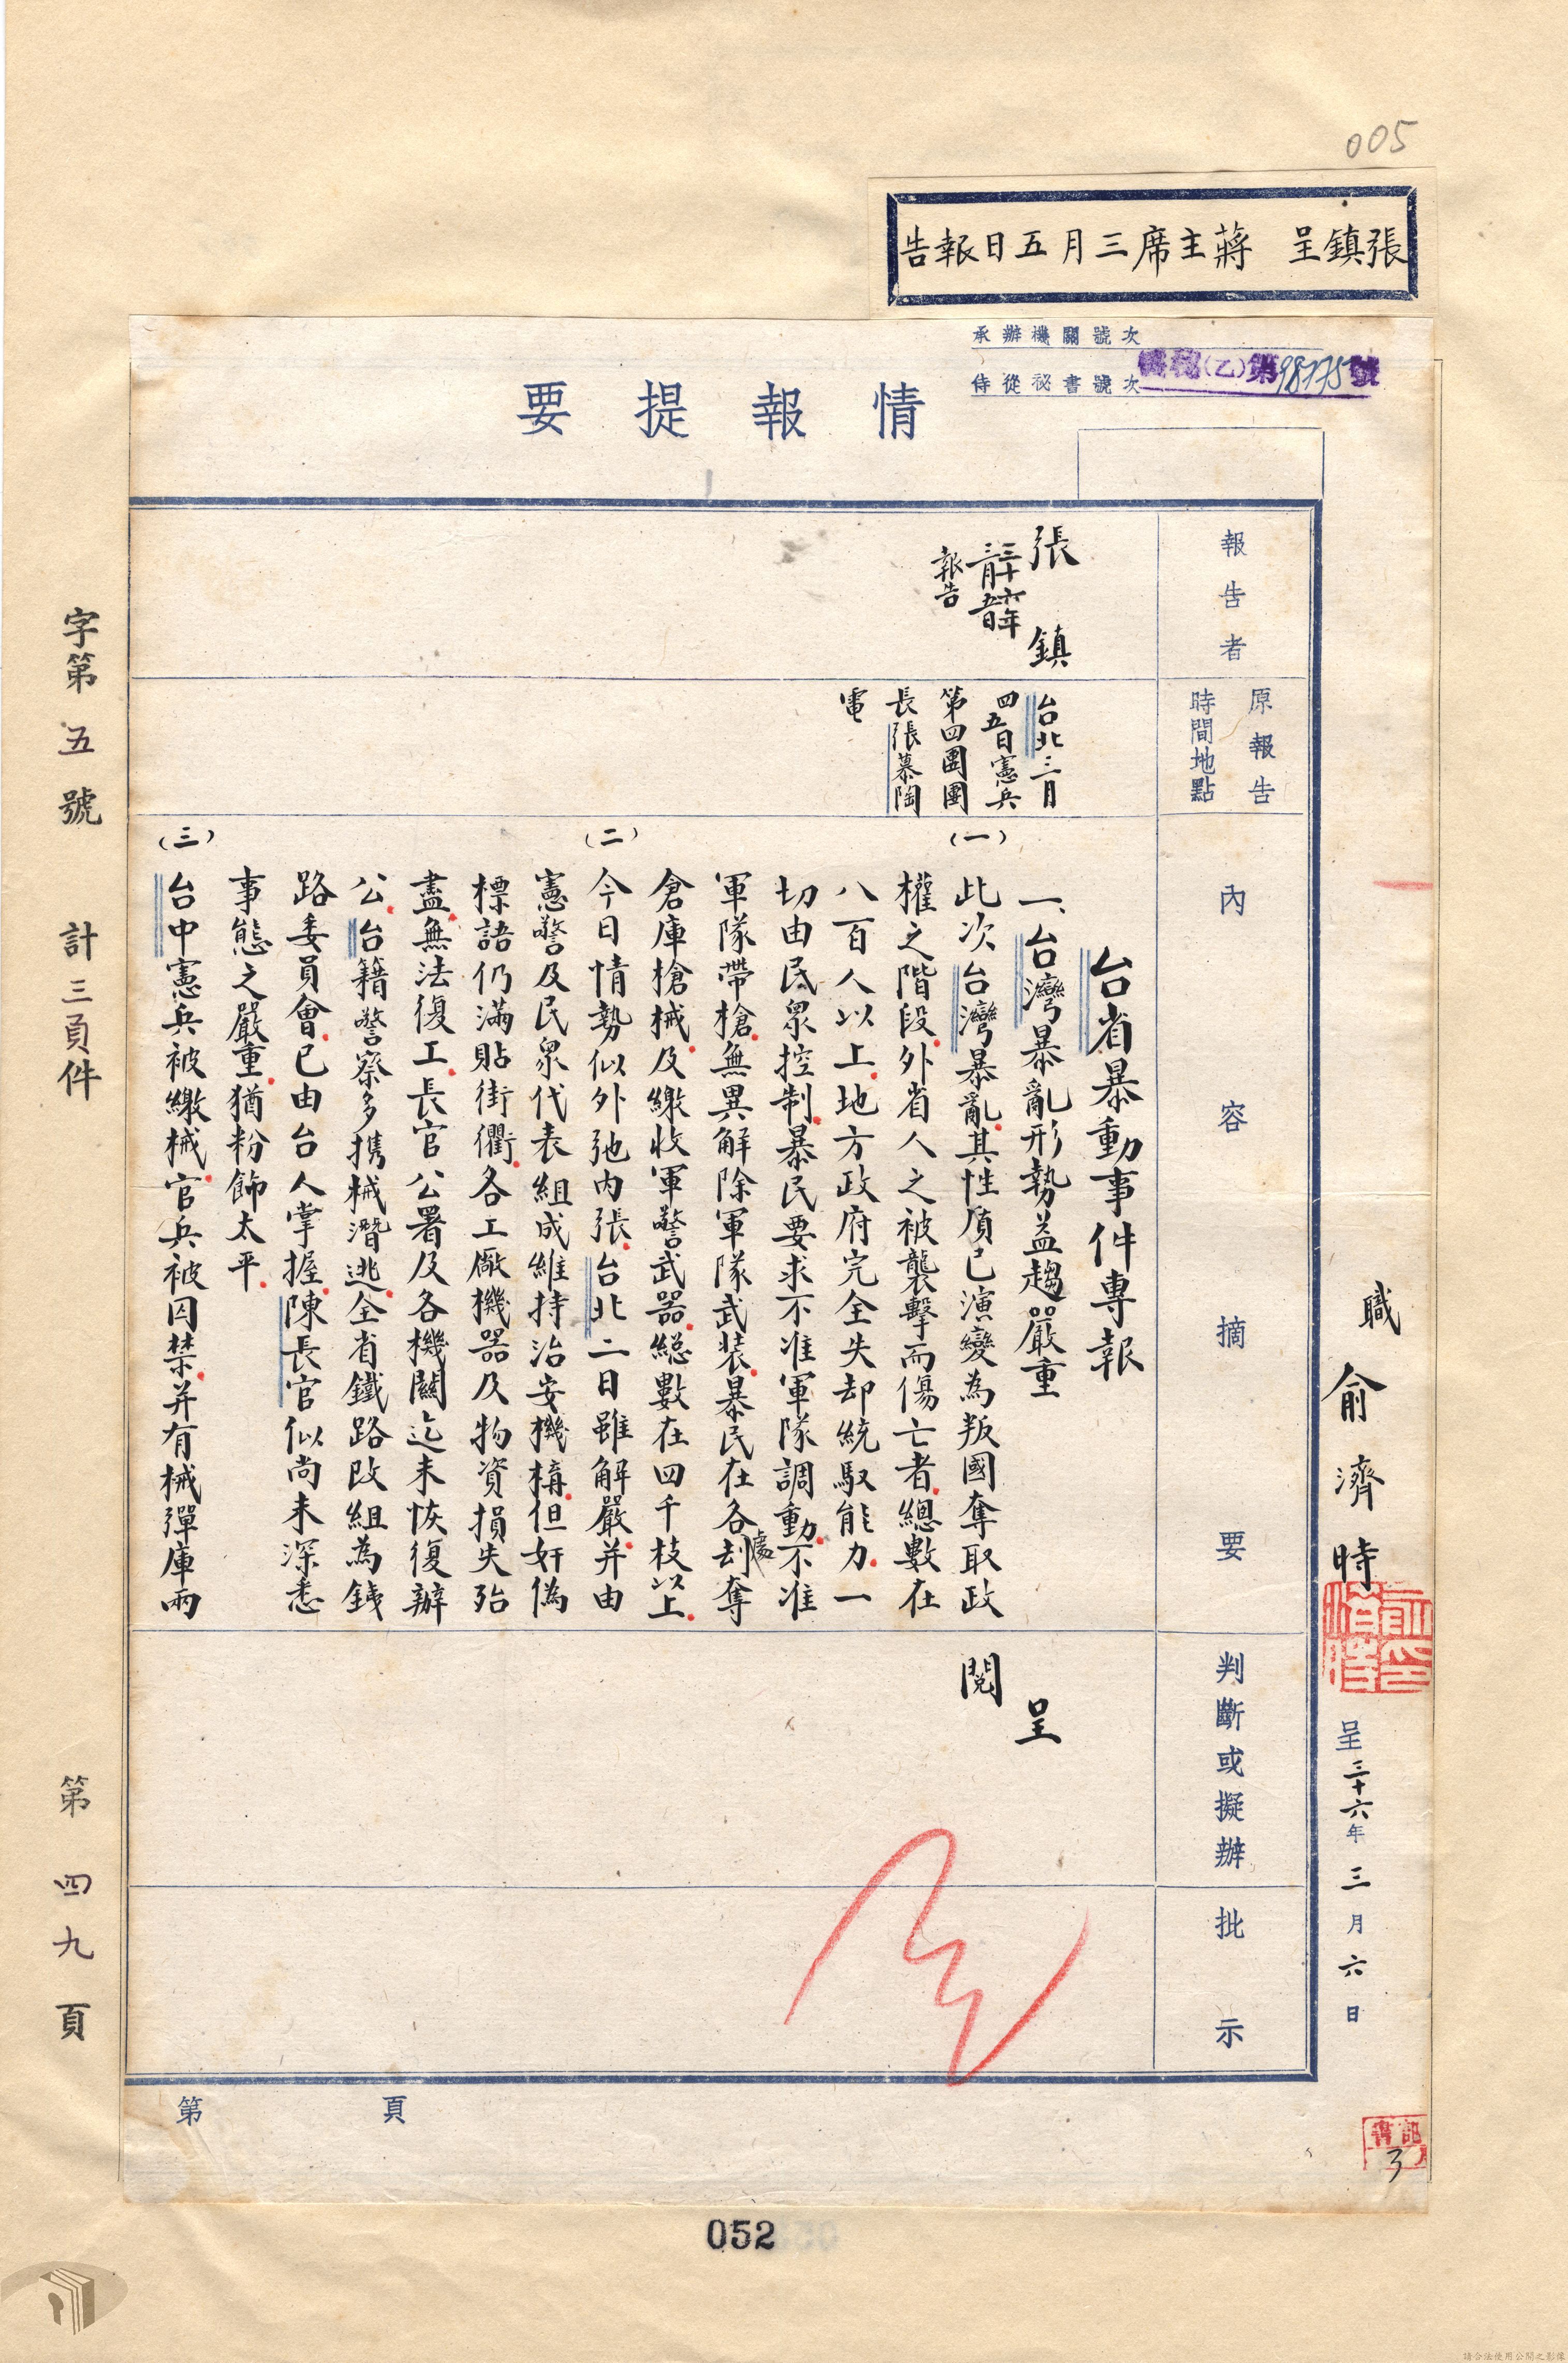 005
張鎮呈 蔣主席三月五日報告
承辦機關號次
侍從祕書號次 (乙)第98775號
情報提要
職 俞濟時
呈 三十六年三月六日
報告者
張鎮
三十六年
三月五日
報告
原報告
時間地點
台北三月
四五日憲兵
第四團團
長張慕陶
電
內容摘要
台省暴動事件專報
一、台灣暴亂形勢益趨嚴重
(一)
此次台灣暴亂其性質已演變為叛國奪取政
權之階段外省人之被襲擊而傷亡者總數在
八百人以上地方政府完全失却統馭能力一
切由民眾控制暴民要求不准軍隊調動不准
軍隊帶槍無異解除軍隊武裝暴民在各處刦奪
倉庫槍械及繳收軍警武器總數在四千枝以上
(二)
今日情勢似外弛內張台北二日雖解嚴并由
憲警及民眾代表組成維持治安機構但奸偽
標語仍滿貼街衢各工廠機器及物資損失殆
盡無法復工長官公署及各機關迄未恢復辦
公台籍警察多携械潛逃全省鐵路改組為鉄
路委員會已由台人掌握陳長官似尚未深悉
事態之嚴重猶粉飾太平
(三)
台中憲兵被繳械官兵被囚禁并有械彈庫兩
判斷或擬辦
呈
閱
批示
第 頁
字第五號 計三頁件 第四九頁
3
052
請合法使用公開之影像